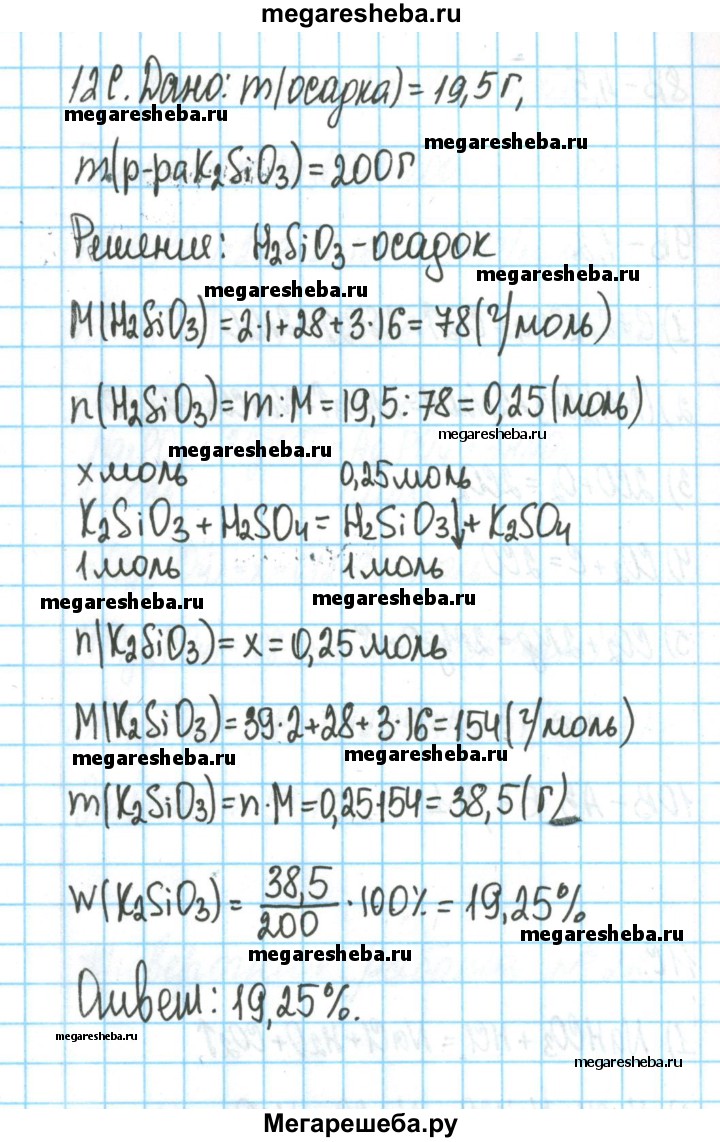 megaresheba.ru
12С. Дано: m(осадка) = 19,5 г,
megaresheba.ru
megaresheba.ru
m(р-ра K₂SiO₃) = 200 г
Решения: H₂SiO₃ - осадок
megaresheba.ru
megaresheba.ru
M(H₂SiO₃) = 2·1 + 28 + 3·16 = 78 (г/моль)
n(H₂SiO₃) = m : M = 19,5 : 78 = 0,25 (моль)
megaresheba.ru
megaresheba.ru
x моль 0,25 моль
K₂SiO₃ + H₂SO₄ = H₂SiO₃↓ + K₂SO₄
1 моль 1 моль
megaresheba.ru
megaresheba.ru
n(K₂SiO₃) = x = 0,25 моль
M(K₂SiO₃) = 39·2 + 28 + 3·16 = 154 (г/моль)
megaresheba.ru
megaresheba.ru
m(K₂SiO₃) = n·M = 0,25·154 = 38,5 (г)
W(K₂SiO₃) = 38,5/200 · 100% = 19,25%
megaresheba.ru
megaresheba.ru
Ответ: 19,25%.
megaresheba.ru
megaresheba.ru
Мегарешеба.ру